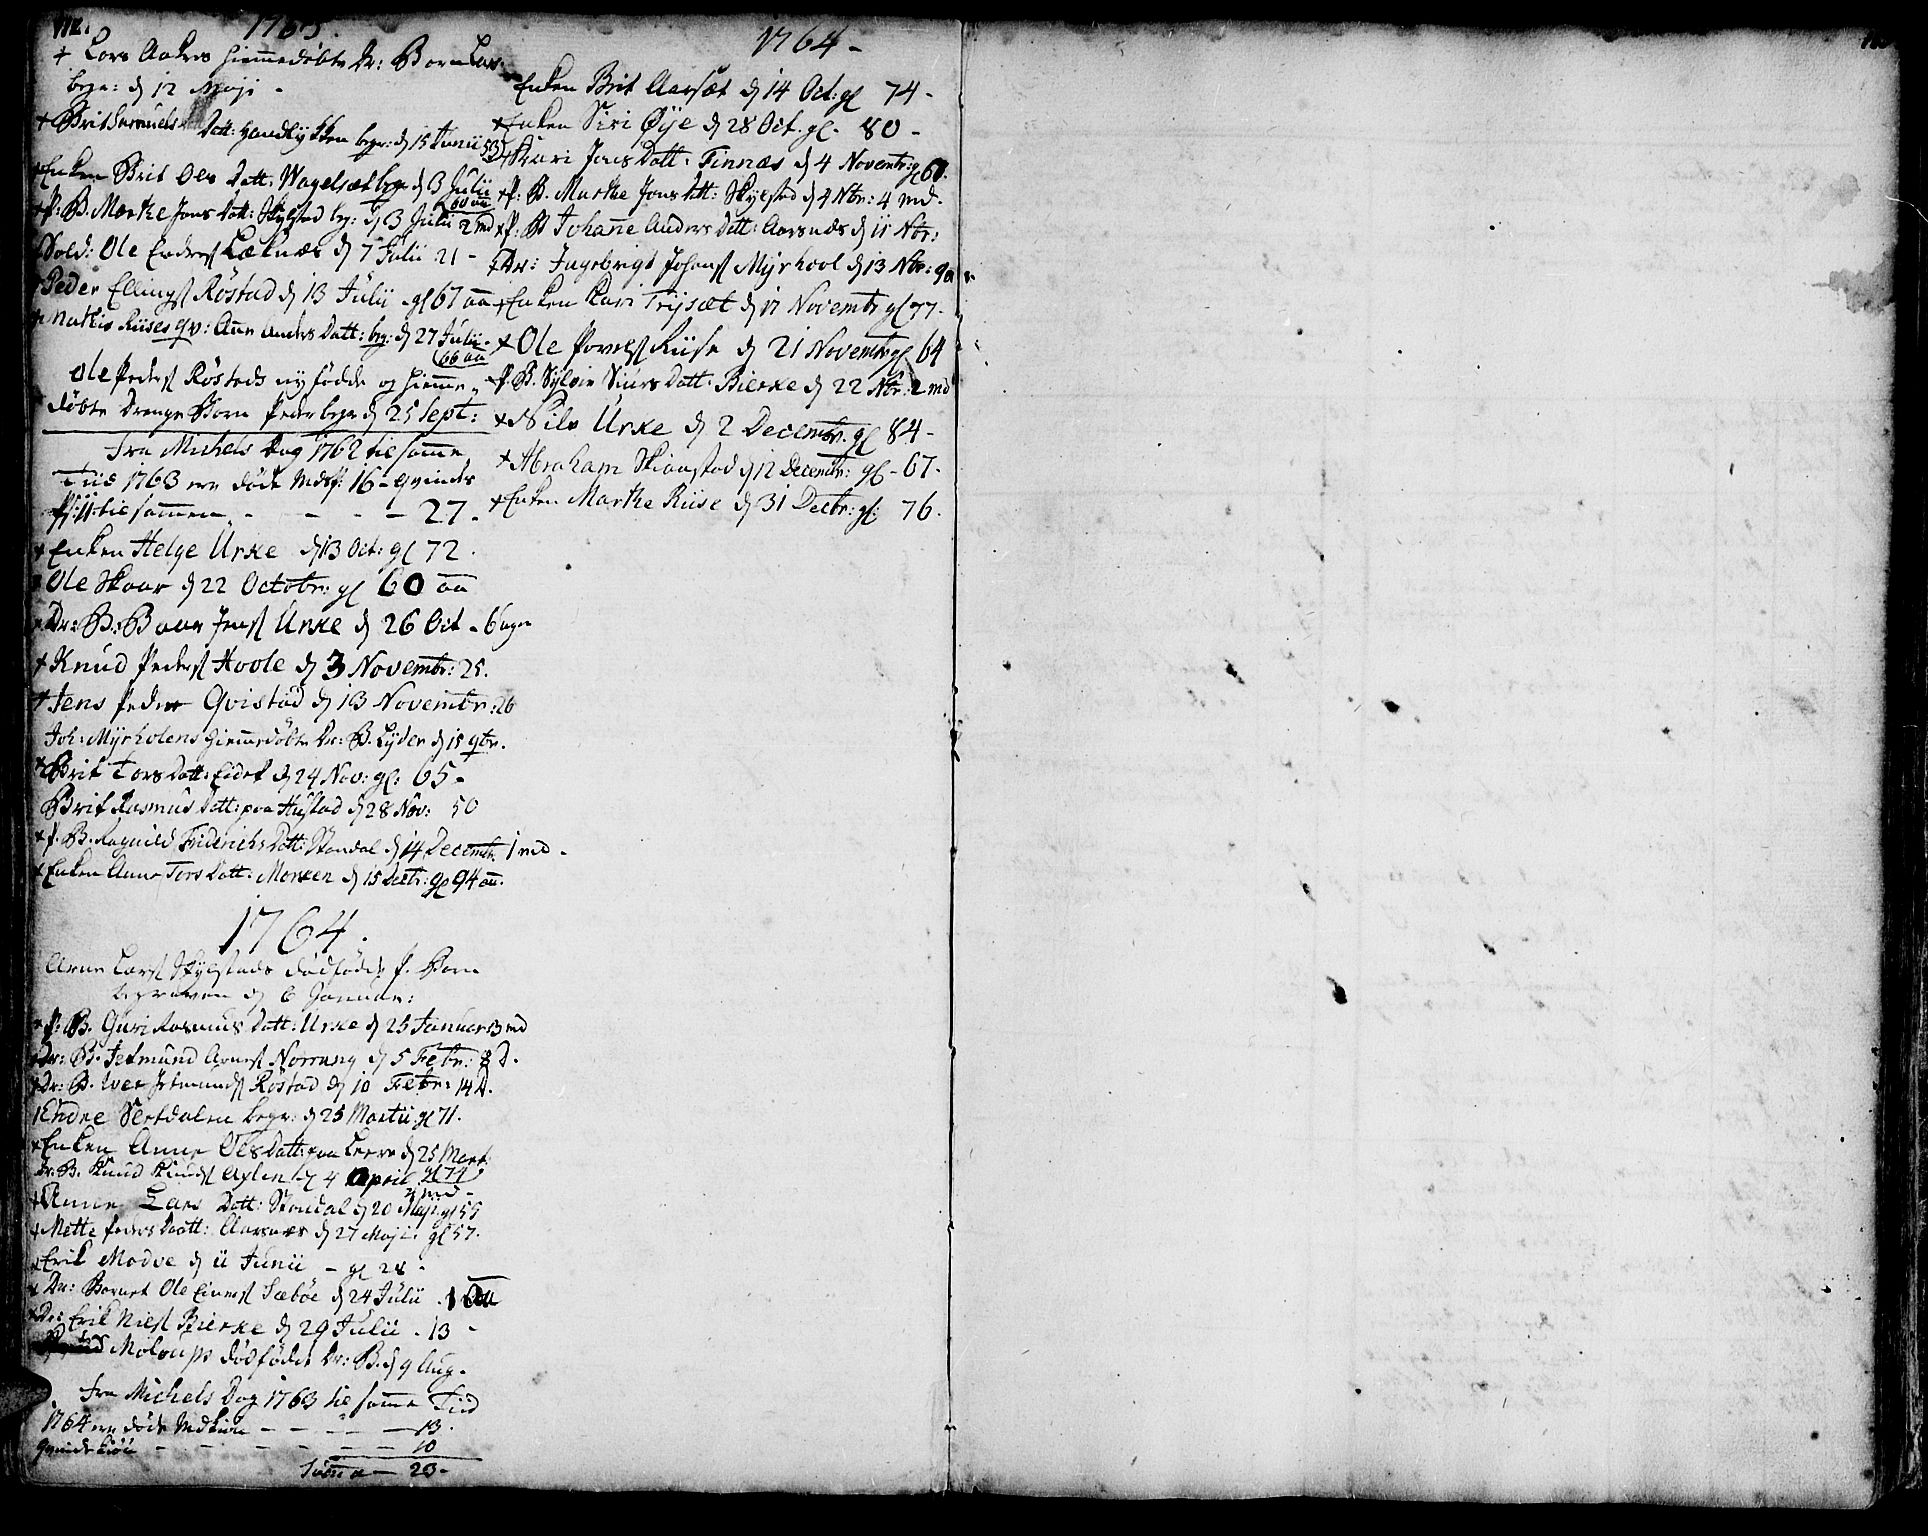 112.
1763.
+ Lars Aakres hiemmedøbte Dr: Barn Lars
begr: d 12 Maji -
+ Brit Samuels Datt: Handlykken begr: d 15 Junii 53
+ Enken Brit Ols Datt: Wagelsæt begr d 3 Julii
60 aa
+ P: B. Marthe Jons Datt: Skylstad begr: d 3 Julii 2 md
Sold: Ole Endres Leknæs d 7 Julii 21 -
Peder Ellings Røstad d 13 Julii - gl 67 aa
+ Mathis Riises qv: Ane Anders Datt: begr: d 27 Julii -
66 aa
Ole Peders Røstads nyfødde og hieme
døbte Drenge Barn Peder begr d 25 Sept:
Fra Michels Dag 1762 til samme
Tiid 1763 ere døde Mds P: 16 - qvinds
P: 11 - til sammen - - - - 27 -
+ Enken Helge Urke d 13 Oct: gl 72.
+ Ole Skaar d 22 Octobr: gl 60 aa
+ Dr: B: Baar Jens Urke d 26 Oct - 6 uger
+ Knud Peders Hoole d 3 Novembr: 25.
+ Jens Peders Qvistad d 13 Novembr: 26
Joh: Myrholens hiemmedøbte Dr: B. Lyder d 15 9br.
+ Brit Tors Datt: Eidet d 24 Nov: gl: 65 -
Brit Rasmus Datt: paa Hustad d 28 Nov: 50
+ P. B. Ragnild Friderichs Datt: Standal d 14 Decembr. 1 md -
+ Enken Anne Tors Datt: Morken d 15 Decbr: gl 94 aa.
1764.
Arne Lars Skylstads dødfødde P. Barn
begraven d 6 Januar:
+ P: B. Guri Rasmus Datt: Urke d 25 Januar 3 md
+ Dr: B. Jetmund Arnes Norrang d 5 Febr: 8 D.
+ Dr: B. Iver Jetmunds Røstad d 10 Febr: 14 D.
+ Endre Sertdalen begr: d 25 Martii gl 71.
+ Enken Anne Ols Datt: paa Leere d 25 Mart
gl 74
Dr: B. Knud Knuds Aflen d 4 April
+ Anne Lars Datt: Standal d 20 Maji gl 55
+ Mette Peders Datt: Aarsnæs d 27 Maji gl 57.
+ Erik Modve d 11 Junii - gl 28 -
+ Dr: Barnet Ole Einers Sæbøe d 24 Julii - 1 aa
+ Dr: Erik Niels Bierke d 29 Julii - 13 -
Moloups dødfødde Dr: B. d 9 Aug.
Fra Michels Dag 1763 til samme Tiid
1764 ere døde Mdkiøn - - - - 13.
qvindekiøn - - - - 10
Summa - 23 -
1764 -
Enken Brit Aarsæt d 14 Oct: gl 74 -
+ Enken Siri Øÿe d 28 Oct. gl. 80 -
+ Kari Jons Datt: Finnæs d 4 Novembr: gl 61.
+ P: B. Marthe Jons Datt: Skylstad d 4 Nbr: 4 md.
+ P: B Johane Anders Datt: Aarsnæs d 11 Nbr:
+ Dr: Ingebrigt Johans Myrhool d 13 Nbr: 9 aar
+ Enken Kari Trysæt d 17 Novembr gl 77.
+ Ole Povels Riise d 21 Novembr gl 64
+ P. B. Sylvie Siurs Datt: Bierke d 22 Nbr: 2 md
+ Nils Urke d 2 Decembr. gl 84 -
+ Abraham Skianstad d 12 Decembr: gl - 67.
+ Enken Marthe Riise d 31 Decbr: gl: 76.